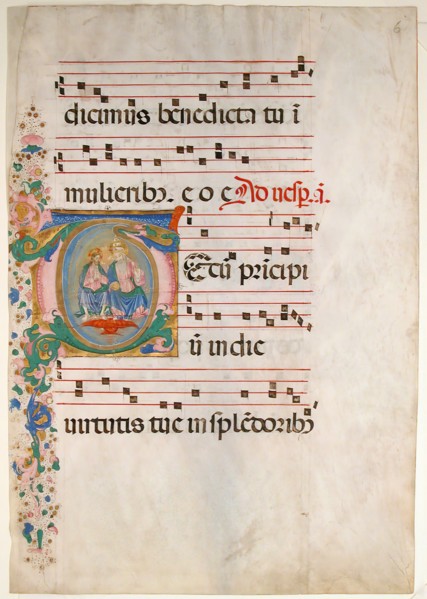 6
dicimus benedicta tu ī
mulieribꝫ. e o e Ad uesꝑ. ā.
Tecū prīcipi
ū in die
uirtutis tue in splēdoribꝫ